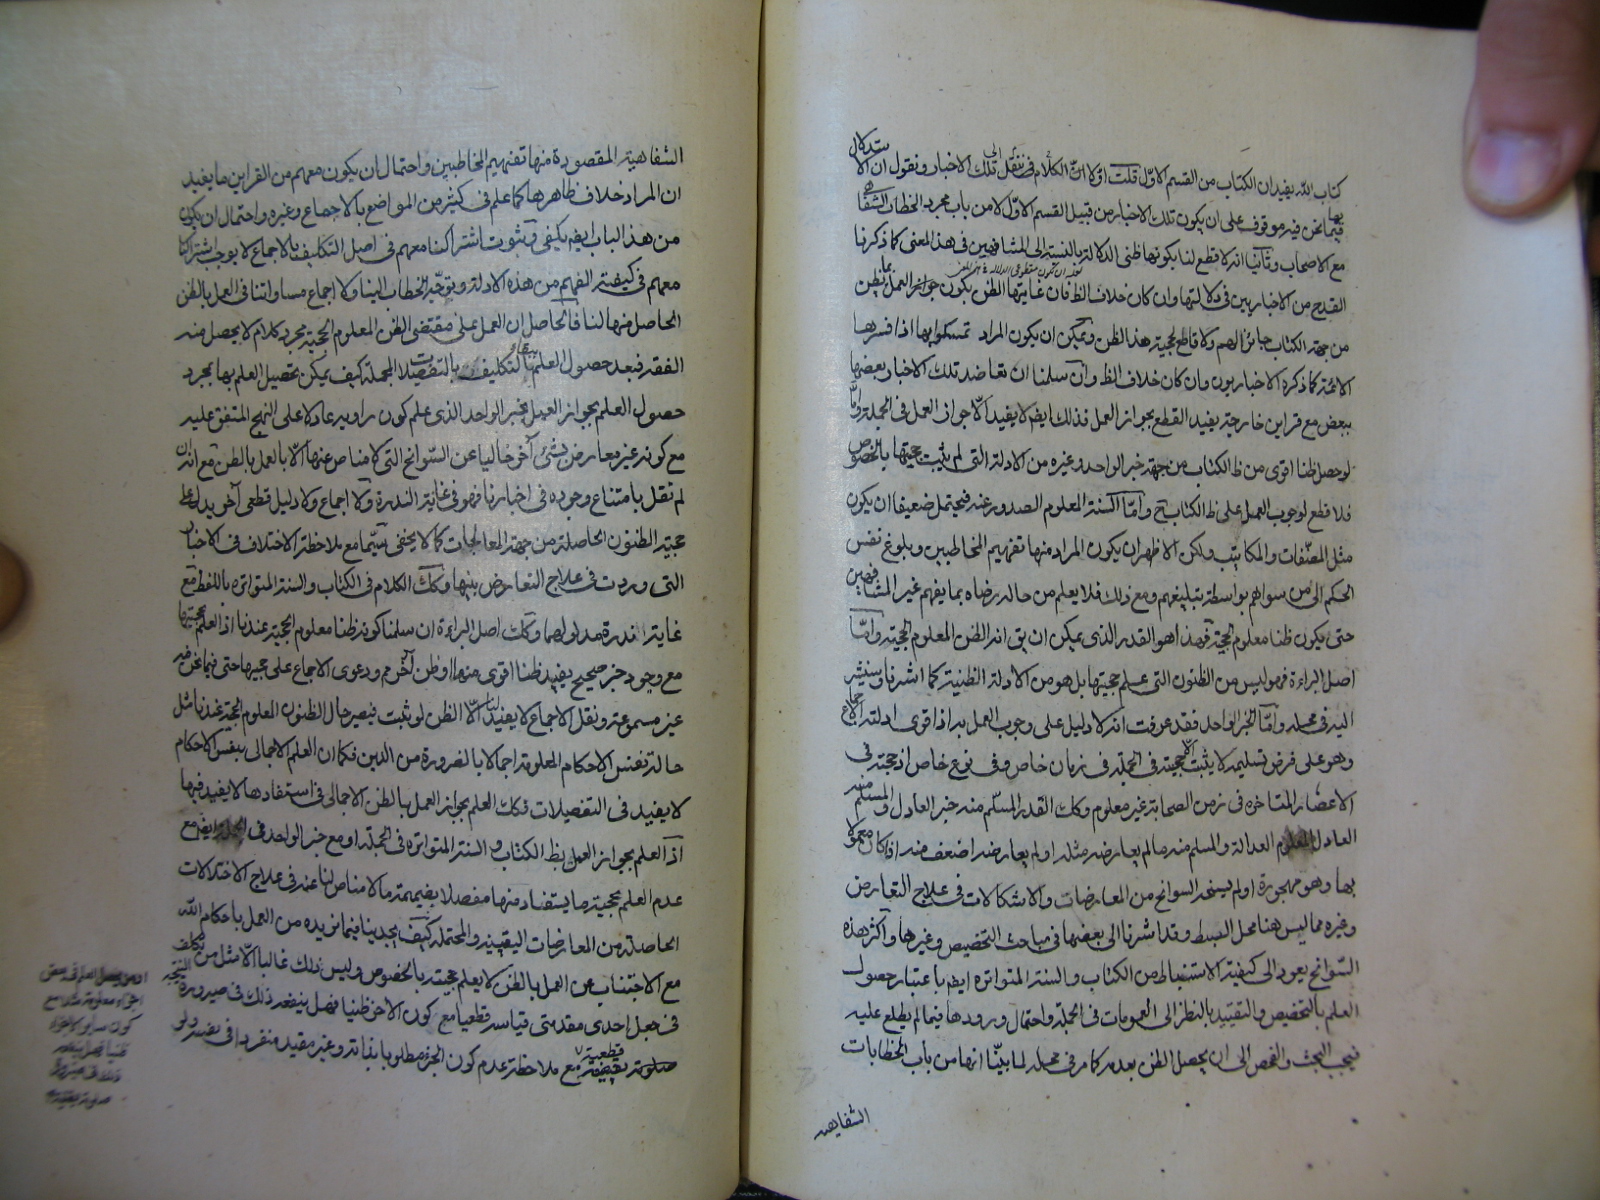 كتاب الله يفيد ان الكتاب من القسم الاوّل قلت اوّلا انّ الكلام فى ننقل إلى تلك الاخبار ونقول ان الاستدلال
بها فيما نحن فيه موقوف على ان يكون تلك الاخبار من قبيل القسم الاوّل لا من باب مجرد الخطاب الشفاهى
مع الاصحاب وثانيا انه لا قطع لنا بكونها ظنى الدلالة بالنسبة الى المشافهين فى هذا المعنى كما ذكرنا
القدح من الاخباريين فى دلالتها وان كان خلاف الظ فان غايتها الظن بكون جواز العمل بالظن
من جهة الكتاب جايزا لهم ولا قاطع لحجية هذا الظن ويمكن ان يكون المراد تمسكوا بها اذا فسرها
الائمة كما ذكره الاخباريون وان كان خلاف الظ وان سلمنا ان تعاضد تلك الاخبار بعضها
ببعض مع قراين خارجة يفيد القطع بجواز العمل فذلك ايضا لا يفيد الّا جواز العمل فى الجملة وامّا
لو حصل ظنا اقوى من ظ الكتاب من جهة خبر الواحد وغيره من الادلة التى لم يثبت حجيتها بالخصوص
فلا قطع لوجوب العمل على ظ الكتاب ح وامّا السنة المعلوم الصدور عنه فيحتمل ضعيفا ان يكون
مثل المصنّفات والمكاتيب ولكن الاظهر ان يكون المراد منها تفهيم المخاطبين وبلوغ نفس
الحكم الى من سواهم بواسطة تبليغهم ومع ذلك فلا يعلم من حاله رضاه بما يفهم غير المشافهين
حتى يكون ظنا معلوم الحجية فهذا هو القدر الذى يمكن ان يق انه الظن المعلوم الحجية وامّا
اصل البراءة فهو ليس من الظنون التى علم حجيتها بل هو من الادلة الظنية كما اشرنا وسنشير
اليه فى محله وامّا الخبر الواحد فقد عرفت انه لا دليل على وجوب العمل به اذ اقوى ادلته الاجماع
وهو على فرض تسليمه لا يثبت الّا حجيته فى الجملة فى زمان خاص وفى نوع خاص اذ حجيته فى
الاعصار المتاخرة فى زمن الصحابة غير معلوم وكك القدر المسلّم منه خبر العادل والمسلم منه
العادل المعلوم العدالة والمسلم منه ما لم يعارضه مثله او لم يعارضه اضعف منه اذا كان معمولا
بها وهو مهجورة او لم يسنحه السوانح من المعارضات والاشكالات فى علاج التعارض
وغيره مما ليس هنا محل البسط وقد اشرنا الى بعضها فى مباحث التخصيص وغيرها واكثر هذه
السّوانح يعود الى كيفية الاستنباط من الكتاب والسنة المتواترة ايضا باعتبار حصول
العلم بالتخصيص والتقييد بالنظر الى العمومات فى الجملة واحتمال ورودها فيما لم يطلع عليه
فيجب البحث والفحص الى ان يحصل الظن بعدمه كما مر فى محله لما بيّنّا انها من باب الخطابات
الشفاهيه
الشفاهية المقصودة منها تفهيم المخاطبين واحتمال ان يكون معهم من القراين ما يفيد
ان المراد خلاف ظاهرها كما علم فى كثير من المواضع بالاجماع وغيره واحتمال ان يكون
من هذا الباب ايضا يكفى وثبوت اشتراكنا معهم فى اصل التكليف بالاجماع لا يوجب اشتراكنا
معهم فى كيفية الفهم من هذه الادلة وتوجّه الخطاب الينا ولا اجماع مساواتنا فى العمل بالظن
الحاصل منها لنا فالحاصل ان العمل على مقتضى الظن المعلوم الحجية مجرد كلام لا يحصل منه
الفقه فبعد حصول العلم ببقاء التكليف بالتفصيلا المجملة كيف يمكن تحصيل العلم بها بمجرد
حصول العلم بجواز العمل بخبر الواحد الذى علم كون راويه عادلا على النهج المتفق عليه
مع كونه غير معارض بشئ آخر خاليا عن السّوانح التى لا مناص عنها الّا بالعمل بالظن مع انه ان
لم نقل بامتناع وجوده فى اخبارنا فهو فى غاية الندرة ولا اجماع ولا دليل قطعى آخر يدل على
حجية الظنون الحاصلة من جهة المعالجات كما لا يخفى سيّما مع ملاحظة الاختلاف فى الاخبار
التى وردت فى علاج التعارض بينها وكك الكلام فى الكتاب والسنة المتواترة باللفظ مع
غاية ندرة مدلولهما وكك اصل البراءة ان سلمنا كونه ظنا معلوم الحجية عندنا اذ العلم بحجيتها
مع وجود خبر صحيح يفيد ظنا اقوى منهما او ظن آخر م ودعوى الاجماع على حجيتها حتى فيما نحن فيه
غير مسموعة ونقل الاجماع لا يفيد لنا الّا الظن لو ثبت فيصير حال الظنون المعلوم الحجية عندنا مثل
حالة نفس الاحكام المعلومة اجمالا بالضرورة من الدين فكما ان العلم الاجمالى بنفس الاحكام
لا يفيد فى التفصيلات فكك العلم بجواز العمل بالظن الاجمالى فى استفادها لا يفيد فيها
اذ العلم بجواز العمل بظ الكتاب والسنة المتواترة فى الجملة او مع خبر الواحد فى الجملة ايضا مع
عدم العلم بحجية ما يستفاد منها مفصلا بضميمة ما لا مناص لنا عنه فى علاج الاختلالات
الحاصلة من المعارضات اليقينية والمحتملة كيف يجدينا فيما نريده من العمل باحكام الله
مع الاجتناب عن العمل بالظن لا يعلم حجيته بالخصوص وليس ذلك غالبا الّا مثل من يكلف
فى جعل احدى مقدمتى قياسه قطعيا مع كون الاخر ظنيا فهل ينفعه ذلك فى صيرورة النتيجة
قطعية مع ملاحظة عدم كون الجزء مطلوبا بذاته وغير مقيد منفردا فى نفسه ولو
اجزاء معلومة مع
كون ساير الاجزاء
ظنيا فهل ينفعه
ذلك فى صيرورة